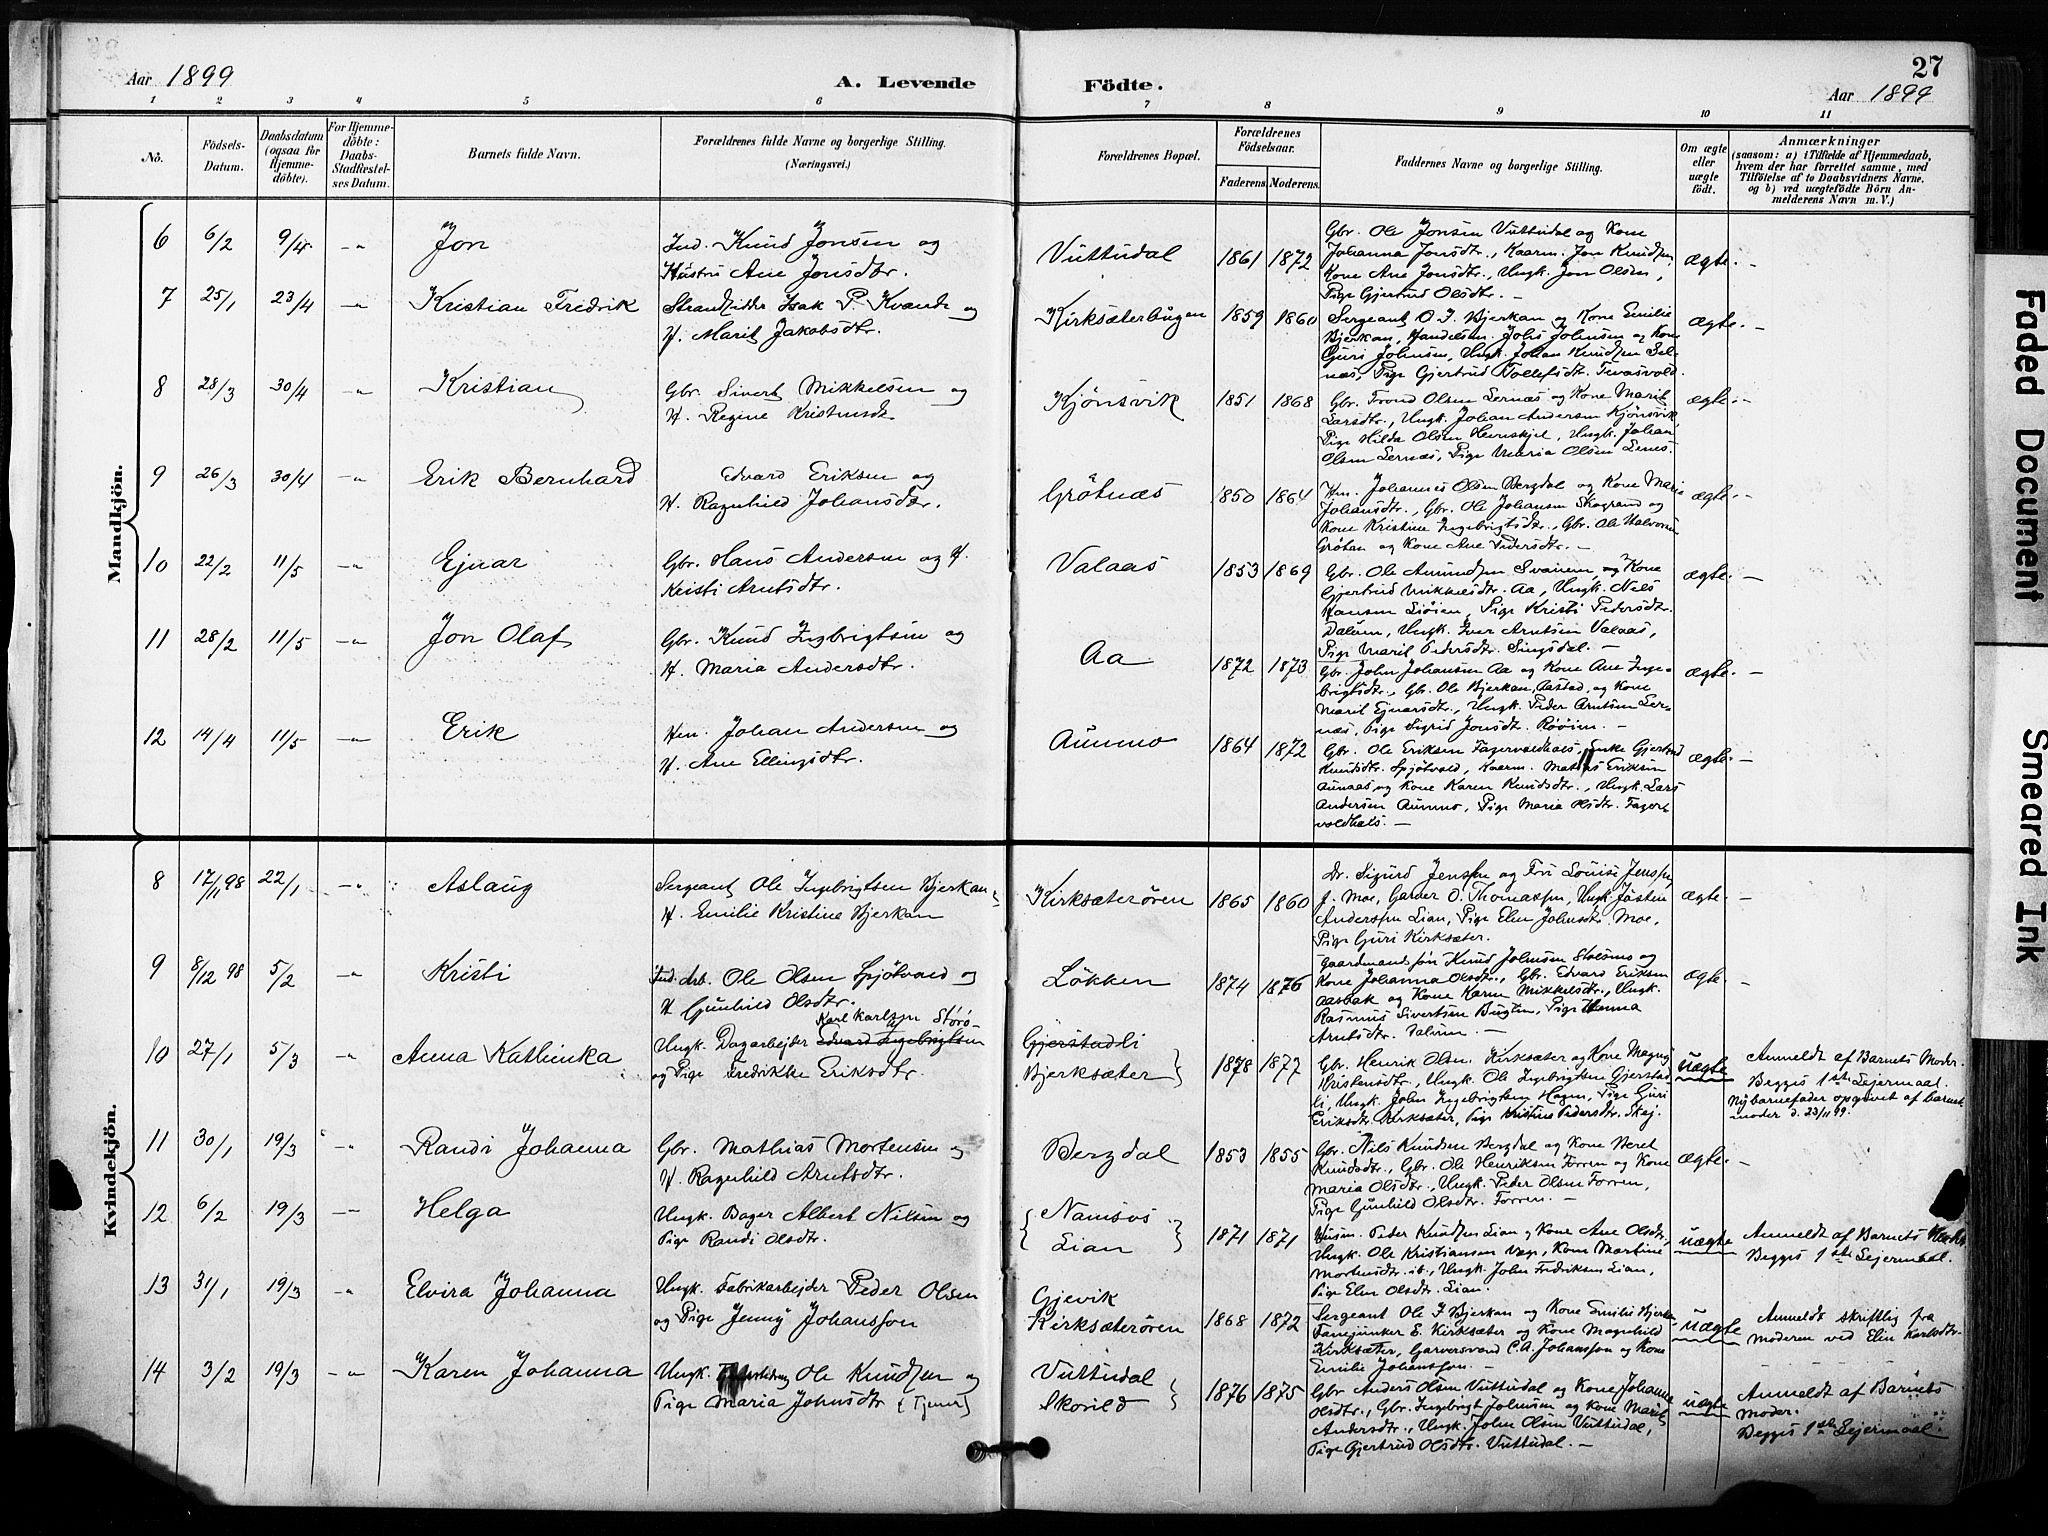 Aar 1899
A. Levende
Födte.
27
Aar 1899
1 2 3 4 5 6 7 8 9 10 11
No.
Födsels-
Datum.
Daabsdatum
(ogsaa for
Hjemme-
döbte).
For Hjemme-
döbte:
Daabs-
Stadfæstel-
ses Datum.
Barnets fulde Navn.
Forældrenes fulde Navne og borgerlige Stilling.
(Næringsvei.)
Forældrenes Bopæl.
Forældrenes
Födselsaar.
Faderens. Moderens.
Faddernes Navne og borgerlige Stilling.
Om ægte
eller
uægte
födt.
Anmærkninger
(saasom: a) i Tilfælde af Hjemmedaab,
hvem der har forrettet samme, med
Tilföielse af to Daabsvidners Navne.
og b) ved uægtefödte Börn An-
melderens Navn m. V.)
Mandkjön.
6 6/2 9/4 -"- Jon
Ind. Knud Jonsen og
Hustru Ane Jonsdtr.
Vuttudal 1861 1872
Gbr. Ole Jonsen Vuttudal og Kone
Johanna Jonsdtr., Kaarm. Jon Knudsen,
Kone Ane Jonsdtr., Ungk. Jon Olsen,
Pige Gjertrud Olsdtr. —
ægte. —
7 25/1 23/4 -"- Kristian Fredrik
Strandsidder Isak P. Kvande og
H. Marit Jakobsdtr.
Kirksæterbugen 1859 1860
Sergeant O. I. Bjerkan og Kone Emilie
Bjerkan, Handelsm. Johs Johnsen og Kone
Guri Johnsen, Ungk. Johan Knudsen Sel-
næs, Pige Gjertrud Tollefsdt.
ægte. —
8 28/3 30/4 -"- Kristian
Gbr. Sivert Mikkelsen og
H. Regine Kristensdt.
Kjönsvik 1851 1868
Gbr. Trond Olsen Lernæs og Kone Marit
Larsdtr., Ungk. Johan Andersen Kjönsvik,
Pige Hilda Olsen Hemskjel, Ungk. Johan
Olsen Lernæs, Pige Maria Olsen Lernes.
ægte. —
9 26/3 30/4 -"- Erik Bernhard
Edvard Eriksen og
H. Ragnhild Johansdtr.
Grötnæs 1850 1864
Hm. Johannes Olsen Bergdal og Kone Marie
Johansdtr., Gbr. Ole Johansen Skogrand og
Kone Kristine Ingebrigtsdtr., Gbr. Ole Halvorsen
Grötan og Kone Ane Pedersdtr. —
ægte. —
10 22/2 11/5 -"- Ejnar
Gbr. Hans Andersen og H.
Kristi Arntsdtr.
Valaas 1853 1869
Gbr. Ole Amundsen Svanem, og Kone
Gjertrud Mikkelsdtr. Aa, Ungk. Nils
Hansen Liöien, Pige Kristi Pedersdtr.
Dalum, Ungk. Iver Arntsen Valaas,
Pige Marit Pedersdtr. Singsdal. —
ægte. —
11 28/2 11/5 -"- Jon Olaf
Gbr. Knud Ingebrigtsen og
H. Maria Andersdtr.
Aa 1872 1873
Gbr. John Johansen Aa og Kone Ane Inge-
brigtsdtr., Gbr. Ole Bjerkan, Aastad, og Kone
Marit Ejnarsdtr., Ungk. Peder Arntsen Ler-
næs, Pige Sigrid Jonsdt. Röösen. —
ægte. —
12 14/4 11/5 -"- Erik
Hm. Johan Andersen og
H. Ane Ellingsdtr.
Aunmo 1864 1872
Gbr. Ole Eriksen Fagervoldhals, Enke Gjertrud
Knudsdtr. Spjötvold, Kaarm. Mathias Eriksen
Aunaas og Kone Karen Knudsdtr., Ungk. Lars
Andersen Aunmo, Pige Maria Olsdtr. Fager-
voldhals. —
ægte. —
Kvindekjön.
8 17/11 98 22/1 -"- Aslaug
Sergeant Ole Ingebrigtsen Bjerkan
H. Emilie Kristine Bjerkan
Kirksæterören 1865 1860
Dr. Sigurd Jenssen og Fru Louise Jenssen,
J. Moe, Garver O. Thomassen, Ungk. Jostein
Anderssen Lian, Pige Elen Johnsdt. Moe,
Pige Guri Kirksæter.
ægte. —
9 8/12 98 5/2 -"- Kristi
Ind. Arb. Ole Olsen Spjötvold og
H. Gunhild Olsdtr.
Lökken 1874 1876
Gaardmandssön Knud Johnsen Stolsmo og
Kone Johanna Olsdtr., Gbr. Edvard Eriksen
Aasbak og Kone Karen Mikkelsdtr., Ungk.
Rasmus Sivertsen Bugten, Pige Hanna
Arntsdtr. Valum. —
ægte. —
10 27/1 5/3 -"- Anna Kathinka
Karl Karlsen Störö-
Ungk. Dagarbejder Edvard Ingebrigtsen
og Pige Fredrikke Eriksdtr.
Gjerstadli
Bjerksæter } 1878 1877
Gbr. Henrik Olsen Kirksæter og Kone Magni
Kristensdtr., Ungk. Ole Ingebrigtsen Gjerstad-
li, Ungk. John Ingebrigtsen Hagen, Pige Guri
Eriksdt. Kirksæter, Pige Kristine Pedersdtr. Skej.
uægte
Anmeldt af Barnets Moder.
Begges 1ste Lejermaal.
Ny barnefader opgivet af barnets
moder d. 23/11 99.
11 30/1 19/3 -"- Randi Johanna
Gbr. Mathias Mortensen og
H. Ragnhild Arntsdtr.
Bergdal 1853 1855
Gbr. Nils Knudsen Bergdal og Kone Beret
Knudsdtr., Gbr. Ole Henriksen Forren og Kone
Maria Olsdtr., Ungk. Peder Olsen Forren,
Pige Gunhild Olsdtr. Forren. —
ægte. —
12 6/2 19/3 -"- Helga
Ungk. Bager Albert Nilsen og
Pige Randi Olsdtr.
{ Namsos
Lian } 1871 1871
Husm. Peder Knudsen Lian og Kone Ane Olsdtr,
Ungk. Ole Kristiansen Vage, Kone Martine
Mortensdtr. ib., Ungk. John Fredriksen Lian,
Pige Elen Olsdtr. Lian.
uægte
Anmeldt af Barnets
Begges 1ste Lejermaal.
13 31/1 19/3 -"- Elvira Johanna
Ungk. Fabrikarbejder Peder Olsen
og Pige Jenny Johansson
Gjevik
Kirksæterören 1868 1872
Sergeant Ole I. Bjerkan og Kone Emilie Bjerkan
Fanejunker E. Kirksæter og Kone Magnhild
Kirksæter, Garversvend C. A. Johansson og Kone
Emilie Johansson. —
uægte
Anmeldt skriftlig fra
Moderen ved Elin Karlsdtr.
14 3/2 19/3 -"- Karen Johanna
Ungk. Ole Knudsen og
Pige Maria Johnsdtr (Tjener)
Vuttudal
Skorild } 1876 1875
Gbr. Anders Olsen Vuttudal og Kone Johanna
Olsdtr., Gbr. Ingebrigt Johnsen og Kone Marit
Andersdtr., Ungk. John Olsen Vuttudal,
Pige Gjertrud Olsdtr. Vuttudal. —
uægte
Anmeldt af Barnets
Moder.
Begges 1ste Lejermaal.
Faded Document
Smeared Ink